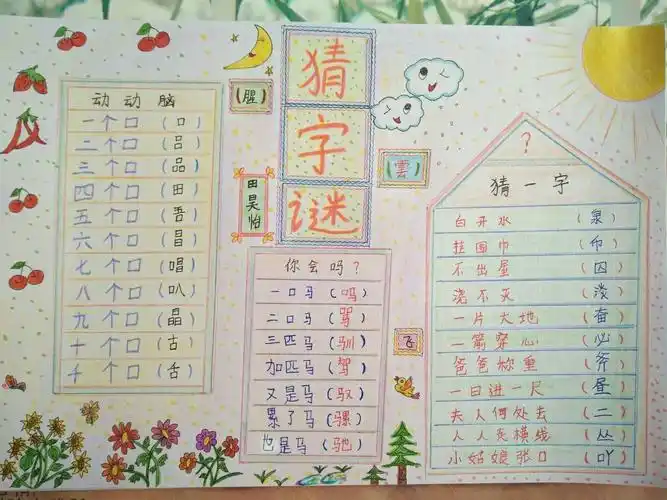 猜字谜
(腥)
田昊怡
(雲)
飞
动动脑
一个口(口)
二个口(吕)
三个口(品)
四个口(田)
五个口(吾)
六个口(昌)
七个口(唱)
八个口(叭)
九个口(晶)
十个口(古)
千个口(舌)
你会吗?
一口马(吗)
二口马(骂)
三匹马(驯)
加匹马(驾)
又是马(驭)
累了马(骡)
也是马(驰)
?
猜一字
白开水(泉)
挂围巾(帘)
不出屋(囚)
浇不灭(泼)
一片大地(奋)
一箭穿心(必)
爸爸称重(斧)
一日进一尺(昼)
夫人何处去(二)
人人走横线(丛)
小姑娘张口(吖)